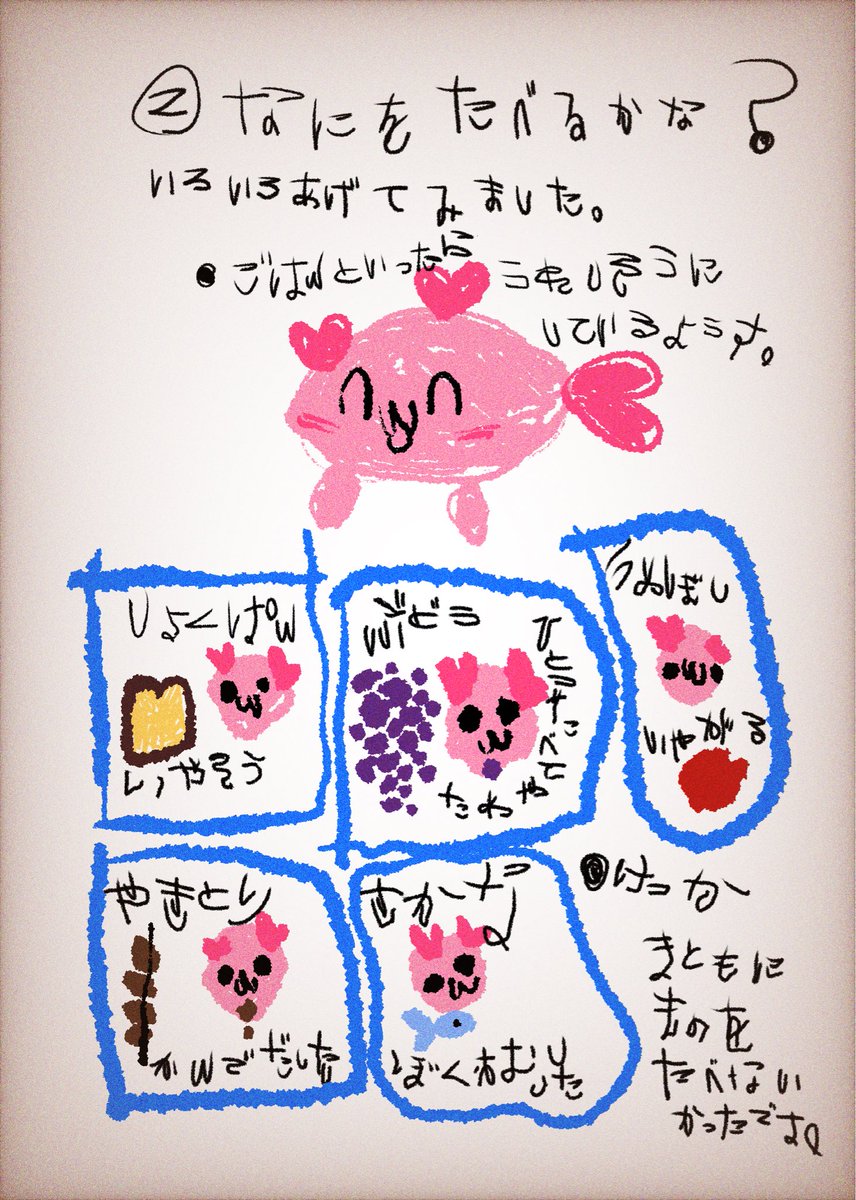 ② なにをたべるかな?
いろいろあげてみました。
●ごはんといったら うれしそうに
しているようす。
しょくぱん
いやそう
ぶどう
ひとつぶたべて
たわや
うめぼし
いやがる
やきとり
かんでだした
さかな
ぼくはむした
●けっか
まともに
ものを
たべない
かったです。